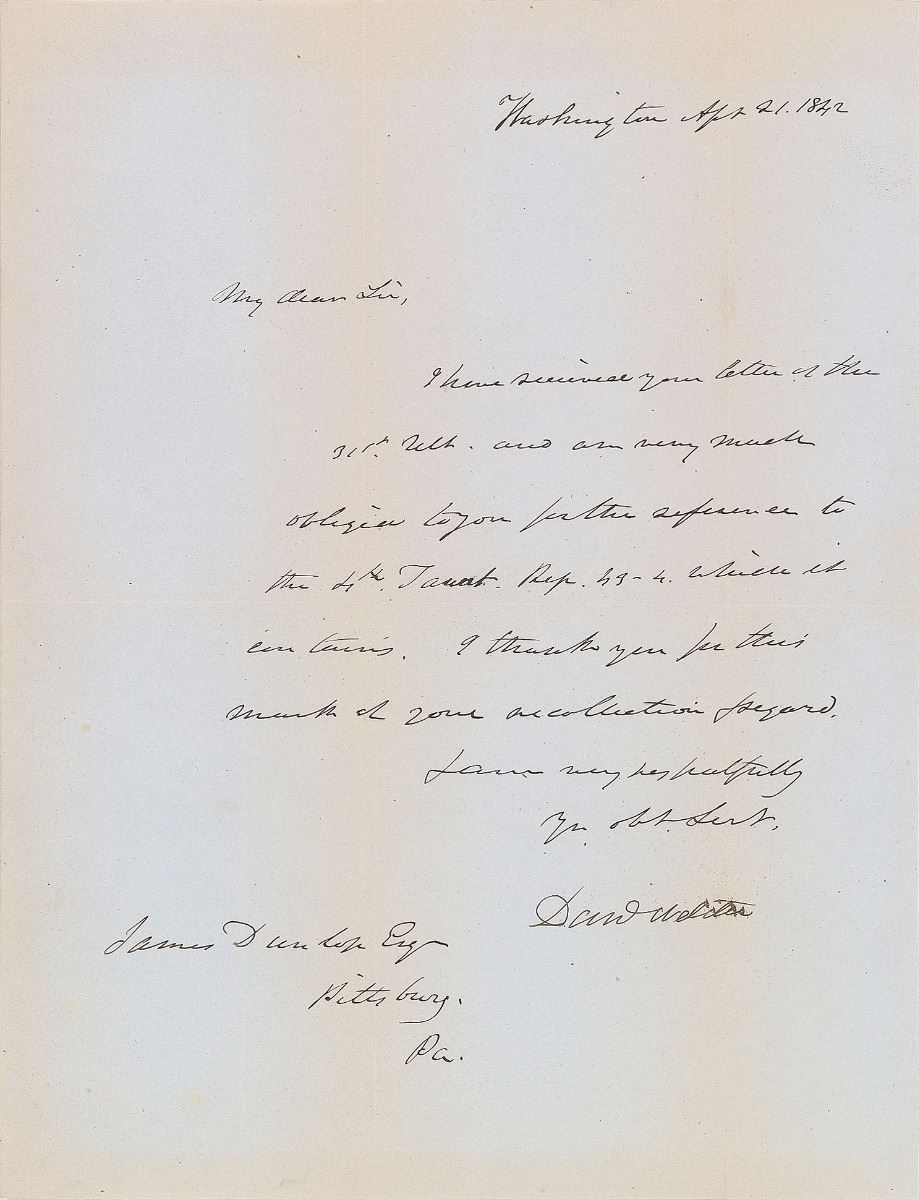 Washington Apl 21. 1842
My dear Sir,
I have received your letter of the
31st. Ult. and am very much
obliged to you for the reference to
the 4th. Taunt. Rep. 43-4. which it
contains. I thank you for this
mark of your recollection & regard.
I am very respectfully
Yr. obt. Servt.
Danl Webster
James Dunlop Esqr
Pittsburg.
Pa.